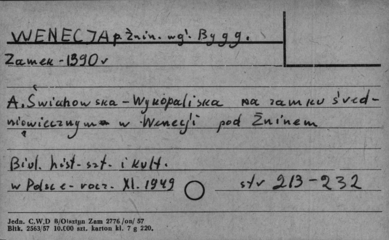 WENECJA p. Żnin. wg. Bygg.
Zamek - 1390 r
A. Świahowska - Wykopaliska na zamku śred-
niowiecznym w Wenecji pod Żninem
Biul. hist-szt. i kult.
w Polsce - rocz. XI. 1949 str 213-232
Jedn. C.W.D 8/Olsztyn Zam 2776/on/57
Bltk. 2563/57 10.000 szt. karton kl. 7 g 220.